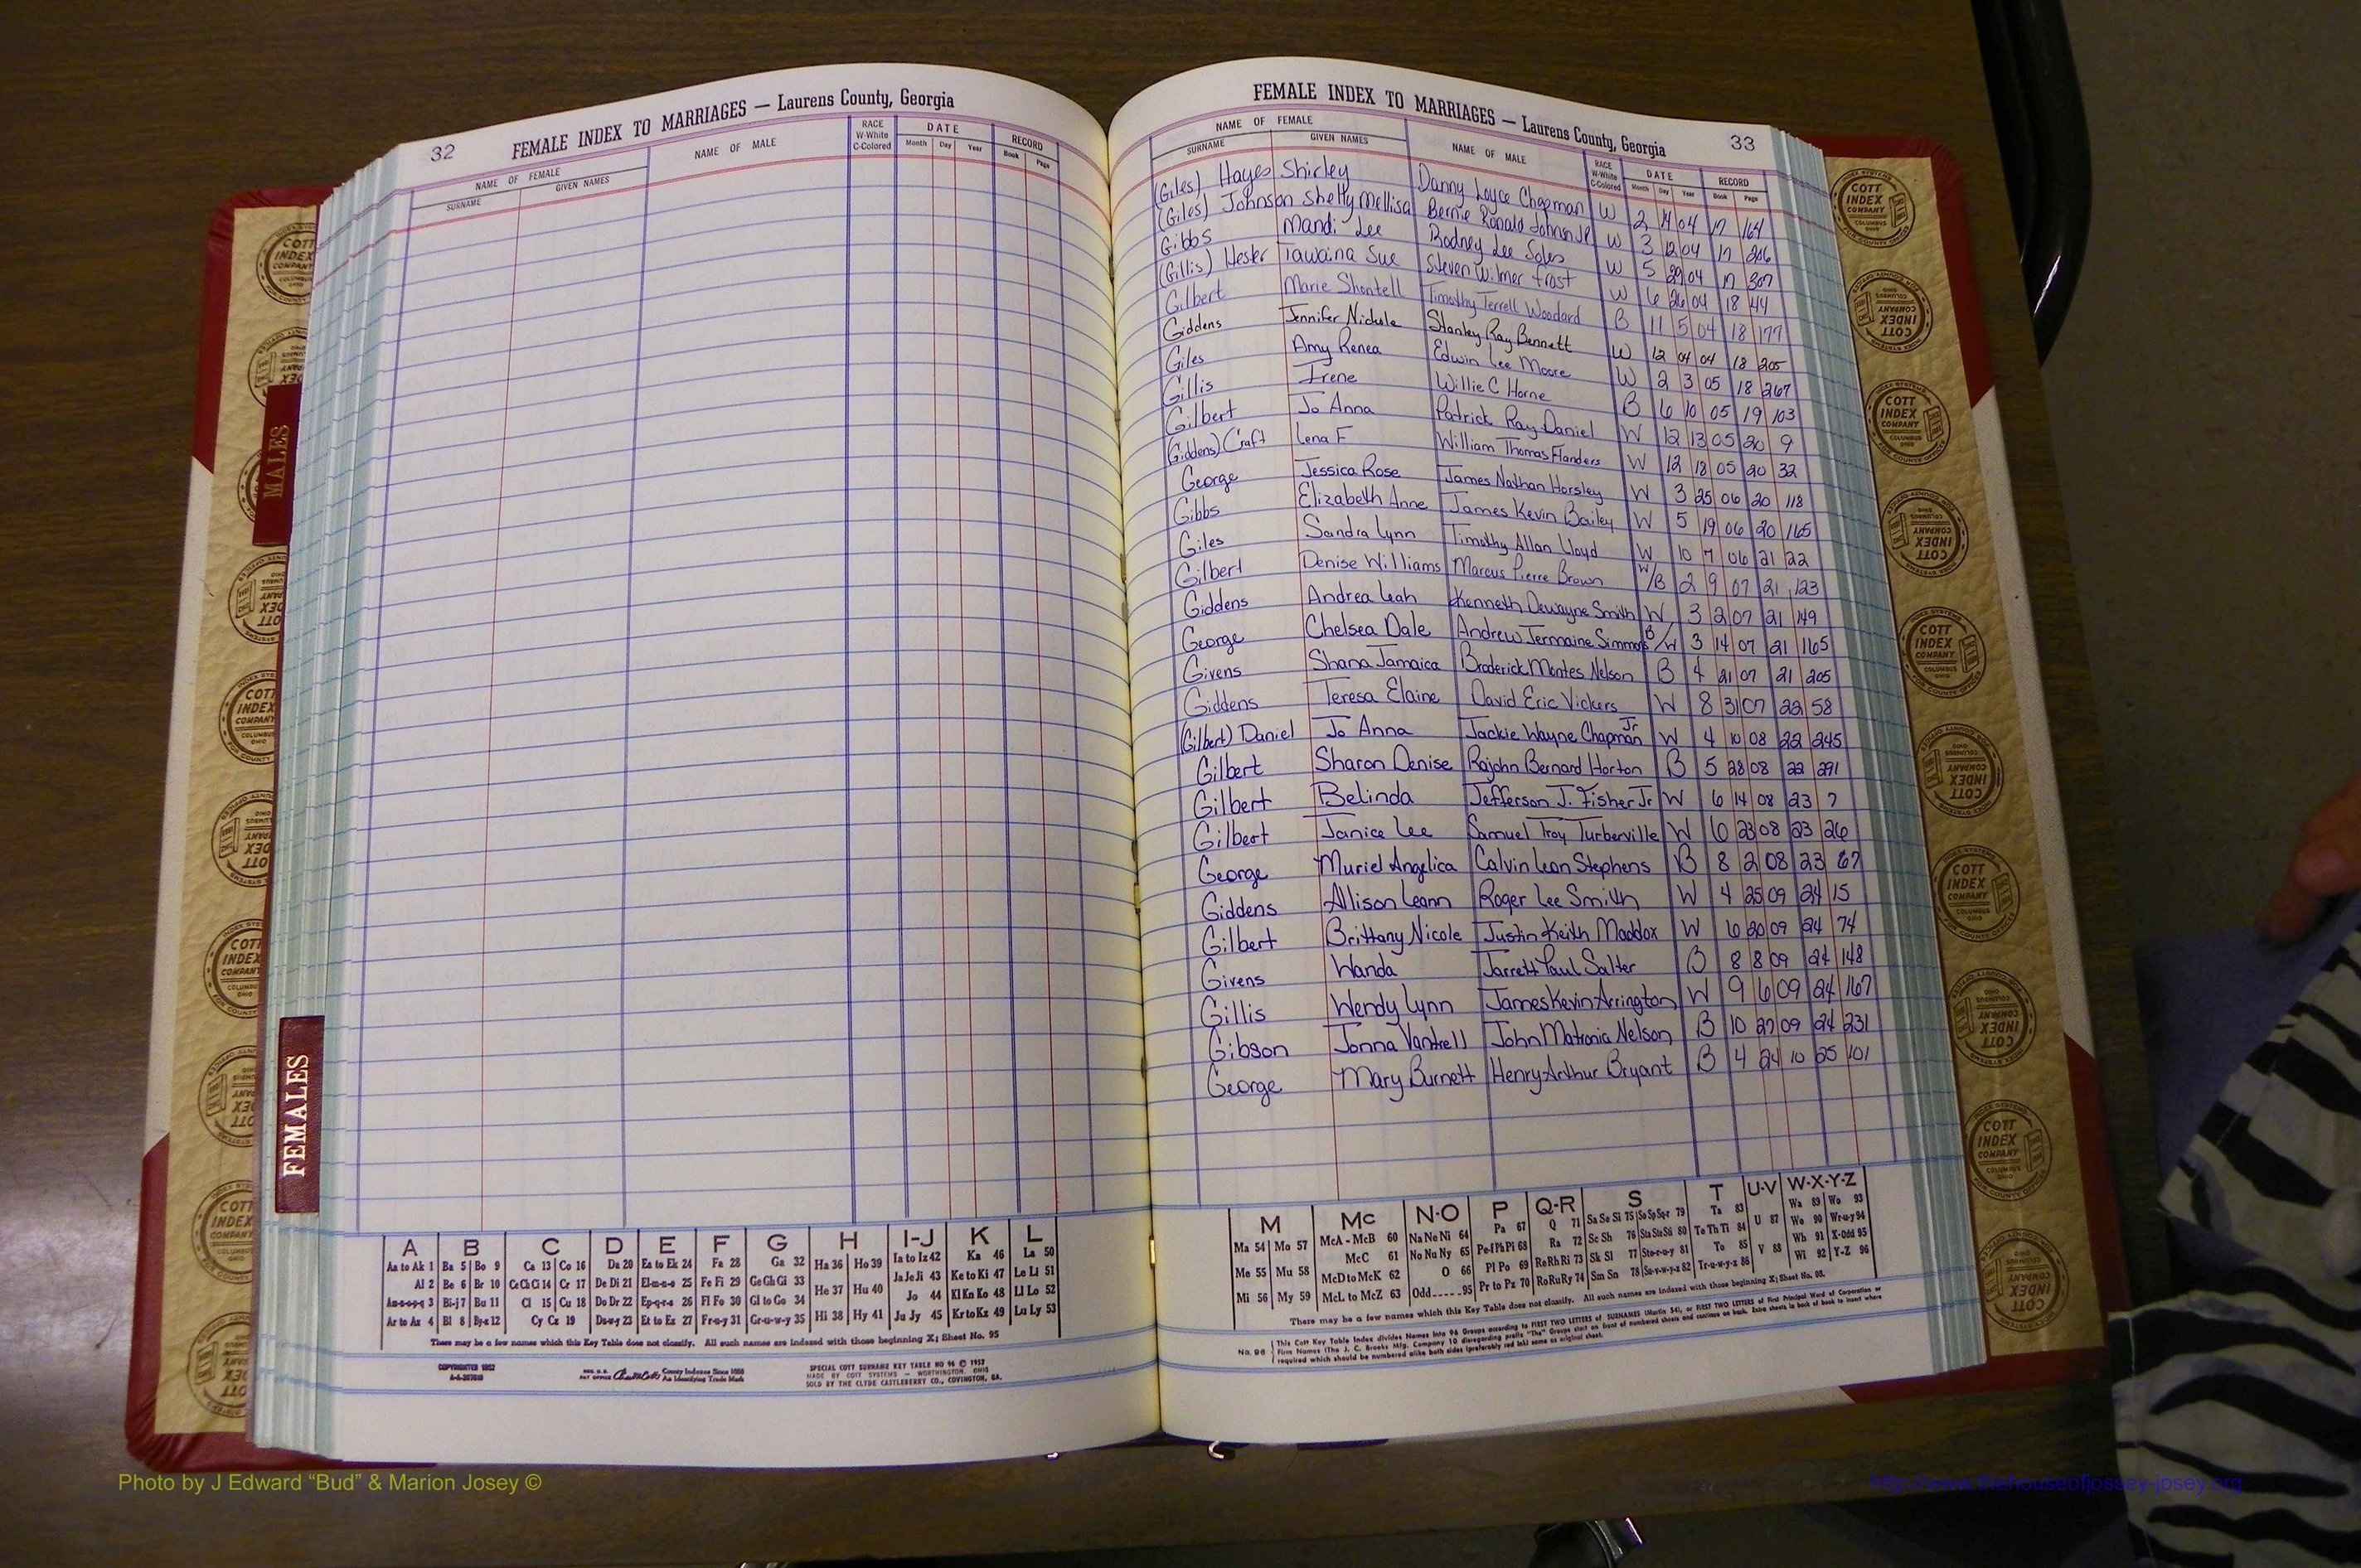 32 FEMALE INDEX TO MARRIAGES — Laurens County, Georgia
NAME OF FEMALE NAME OF MALE RACE W-White C-Colored DATE RECORD
SURNAME GIVEN NAMES Month Day Year Book Page
MALES
FEMALES
A B C D E F G H I-J K L
Aa to Ak 1 Ba 5 Bo 9 Ca 13 Co 16 Da 20 Ea to Ek 24 Fa 28 Ga 32 Ha 36 Ho 39 Ia to Iz 42 Ka 46 La 50
Al 2 Be 6 Br 10 Ce Ch Ci 14 Cr 17 De Di 21 El-m-n-o 25 Fe Fi 29 Ge Gh Gi 33 He 37 Hu 40 Ja Je Ji 43 Ke to Ki 47 Le Li 51
An-o-p-q 3 Bi-j 7 Bu 11 Cl 15 Cu 18 Do Dr 22 Ep-q-r-s 26 Fl Fo 30 Gl to Go 34 Hi 38 Hy 41 Jo 44 Kl Kn Ko 48 Ll Lo 52
Ar to Az 4 Bl 8 By-z 12 Cy Cz 19 Du-w-y 23 Et to Ez 27 Fr-u-y 31 Gr-u-w-y 35 Ju Jy 45 Kr to Kz 49 Lu Ly 53
There may be a few names which this Key Table does not classify. All such names are indexed with those beginning X; Sheet No. 95
COPYRIGHTED 1952
REG. U.S. PAT OFFICE County Indexes Since 1888 An Identifying Trade Mark
SPECIAL COTT SURNAME KEY TABLE NO 96 © 1952
MADE BY COTT SYSTEMS — WORTHINGTON, OHIO
SOLD BY THE CLYDE CASTLEBERRY CO., COVINGTON, GA.
FEMALE INDEX TO MARRIAGES — Laurens County, Georgia 33
NAME OF FEMALE NAME OF MALE RACE W-White C-Colored DATE RECORD
SURNAME GIVEN NAMES Month Day Year Book Page
(Giles) Hayes Shirley Danny Loyce Chapman W 2 14 04 17 164
(Giles) Johnson Shelly Mellisa Bernie Ronald Johnson Jr W 3 12 04 17 206
Gibbs Mandi Lee Rodney Lee Soles W 5 29 04 17 307
(Gillis) Hester Tawaina Sue Steven Wilmer Frost W 6 26 04 18 44
Gilbert Marie Shontell Timothy Terrell Woodard B 11 5 04 18 177
Giddens Jennifer Nichole Stanley Ray Bennett W 12 04 04 18 205
Giles Amy Renea Edwin Lee Moore W 2 3 05 18 267
Gillis Irene Willie C Horne B 6 10 05 19 103
Gilbert Jo Anna Patrick Ray Daniel W 12 13 05 20 9
(Giddens) Craft Lena F William Thomas Flanders W 12 18 05 20 32
George Jessica Rose James Nathan Horsley W 3 25 06 20 118
Gibbs Elizabeth Anne James Kevin Bailey W 5 19 06 20 165
Giles Sandra Lynn Timothy Allan Lloyd W 10 7 06 21 22
Gilbert Denise Williams Marcus Pierre Brown W/B 2 9 07 21 123
Giddens Andrea Leah Kenneth Dewayne Smith W 3 2 07 21 149
George Chelsea Dale Andrew Jermaine Simmons B/W 3 14 07 21 165
Givens Shana Jamaica Broderick Montes Nelson B 4 21 07 21 205
Giddens Teresa Elaine David Eric Vickers W 8 31 07 22 58
(Gilbert) Daniel Jo Anna Jackie Wayne Chapman Jr W 4 10 08 22 245
Gilbert Sharon Denise Rajohn Bernard Horton B 5 28 08 22 291
Gilbert Belinda Jefferson J. Fisher Jr W 6 14 08 23 7
Gilbert Janice Lee Samuel Troy Turberville W 6 23 08 23 26
George Muriel Angelica Calvin Leon Stephens B 8 2 08 23 67
Giddens Allison Leann Roger Lee Smith W 4 25 09 24 15
Gilbert Brittany Nicole Justin Keith Maddox W 6 20 09 24 74
Givens Wanda Jarrett Paul Salter B 8 8 09 24 148
Gillis Wendy Lynn James Kevin Arrington W 9 6 09 24 167
Gibson Jonna Vantrell John Matronia Nelson B 10 27 09 24 231
George Mary Burnett Henry Arthur Bryant B 4 24 10 25 101
M Mc N-O P Q-R S T U-V W-X-Y-Z
Ma 54 Mo 57 McA - McB 60 Na Ne Ni 64 Pa 67 Q 71 Sa Se Si 75 So Sp Sq-r 79 Ta 83 U 87 Wa 89 Wo 93
Me 55 Mu 58 McC 61 No Nu Ny 65 Pe-f Ph Pi 68 Ra 72 Sc Sh 76 Sta Ste Sti 80 Te Th Ti 84 V 88 We 90 Wr-u-y 94
Mi 56 My 59 McD to McK 62 O 66 Pl Po 69 Re Rh Ri 73 Sk Sl 77 Sto-r-u-y 81 To 85 Wh 91 X-Odd 95
McL to McZ 63 Odd 95 Pr to Pz 70 Ro Ru Ry 74 Sm Sn 78 Su-v-w-y-z 82 Tr-u-w-y-z 86 Wi 92 Y-Z 96
There may be a few names which this Key Table does not classify. All such names are indexed with those beginning X; Sheet No. 95.
No. 96 This Cott Key Table Index divides Names into 96 Groups according to FIRST TWO LETTERS of SURNAMES (Martin 54), or FIRST TWO LETTERS of First Principal Word of Corporation or
Firm Names (The J. C. Brooks Mfg. Company 10 disregarding prefix "The" Groups start on front of numbered sheets and continue on back. Extra sheets in back of book to insert where
required which should be numbered alike both sides (preferably red ink) same as original sheet.
COTT INDEX COMPANY COLUMBUS OHIO
INDEX SYSTEMS FOR COUNTY OFFICES
Photo by J Edward “Bud” & Marion Josey ©
http://www.thehouseofjossey-josey.org